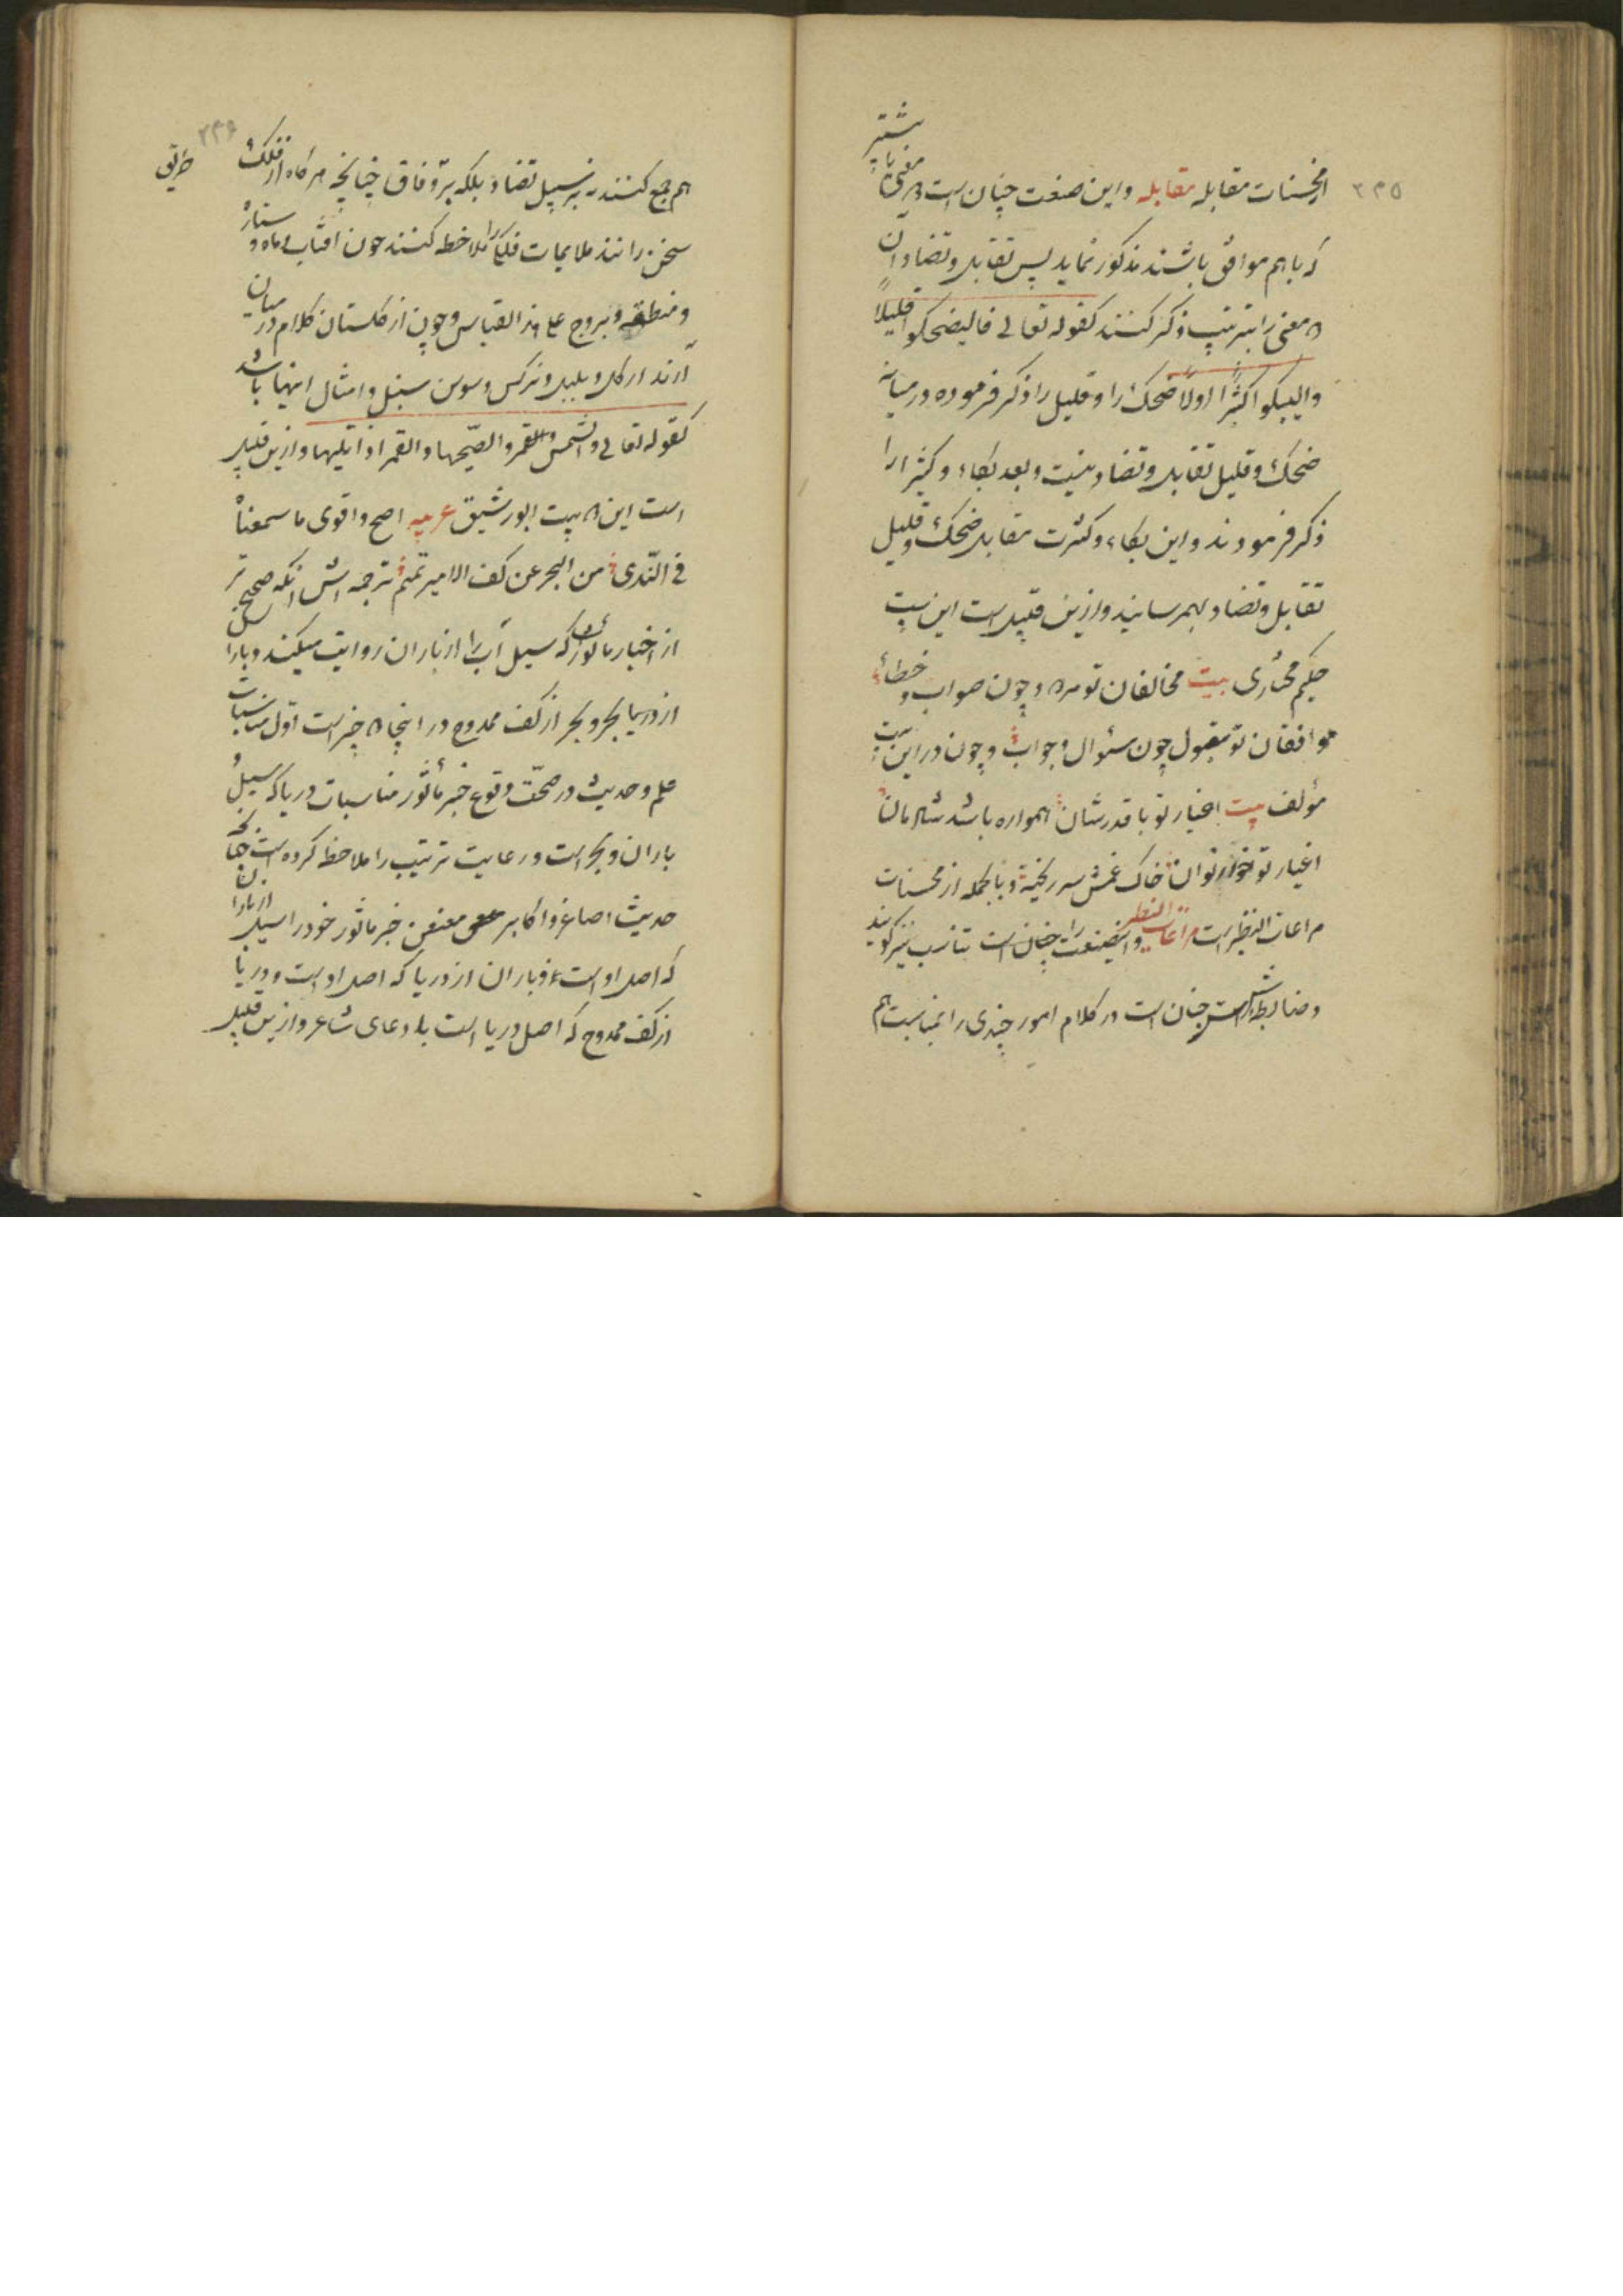 ۲۳۵
از محسنات مقابله مقابله و این صنعت چنان است ۵ معنی یا بیشتر
که با هم موافق باشند مذکور نماید پس تقابل و تضاد آن
۵ معنی را بترتیب ذکر کنند کقوله تعالی فالیضحکوا قلیلاً
والیبکوا کثیراً اولاً ضحک را و قلیل را ذکر فرموده در میانه
ضحک و قلیل تقابل و تضاد نیست و بعد بکاء و کثیر را
ذکر فرمودند و این بکاء و کثرت مقابل ضحک و قلیل
تقابل و تضاد بهم رسانید و ازین قبیل است این بیت
حکیم مختاری بیت مخالفان تو مردود چون صواب و خطا
موافقان تو مقبول چون سئوال و جواب و چون در این بیت
مؤلف بیت اخیار تو با قدرشان همواره باشد شادمان
اغیار تو خوار توان خاک غمش سر ریخته و بالجمله از محسنات
مراعات النظیر است مراعات النظیر و اینصنعت را چنان است تناسب نیز گویند
و ضابطه اش چنان است در کلام امور چندی را بمناسبت هم
۲۳۶
هم جمع کنند نه بر سبیل تضاد بلکه بر وفاق چنانچه هر گاه از فلک
سخن رانند ملایمات فلک را ملاحظه کنند چون افتاب و ماه و ستاره
و منطقه و بروج علی هذا القیاس و چون از گلستان کلام در میان
آرند از گل و بلبل و نرگس و سوسن سنبل و امثال اینها باشد
کقوله تعالی والشمس والقمر والضحیها والقمر اذا تلیها و ازین قبیل
است این ۵ بیت ابو رشیق عربیه اصح و اقوی ما سمعناه
فی الندی من البحر عن کف الامیر تمیم ترجمه اش انکه صحیح تر
از اخبار ماثوره که سیل آنرا از باران روایت میکند و باران
از دریا بحر و بحر از کف ممدوح در اینجا ۵ چیز است اول مناسبات
علم و حدیث در صحت وقوع خبر مأثور مناسبات دریا که سیل و
باران و بحر است و رعایت ترتیب را ملاحظه کرده است چنانچه
حدیث اصاغر و اکابر معنعن خبر ماثور خود را سیل از باران
که اصل او است و باران از دریا که اصل او است و دریا
از کف ممدوح که اصل دریا است بادعای شاعر و ازین قبیل
طریق